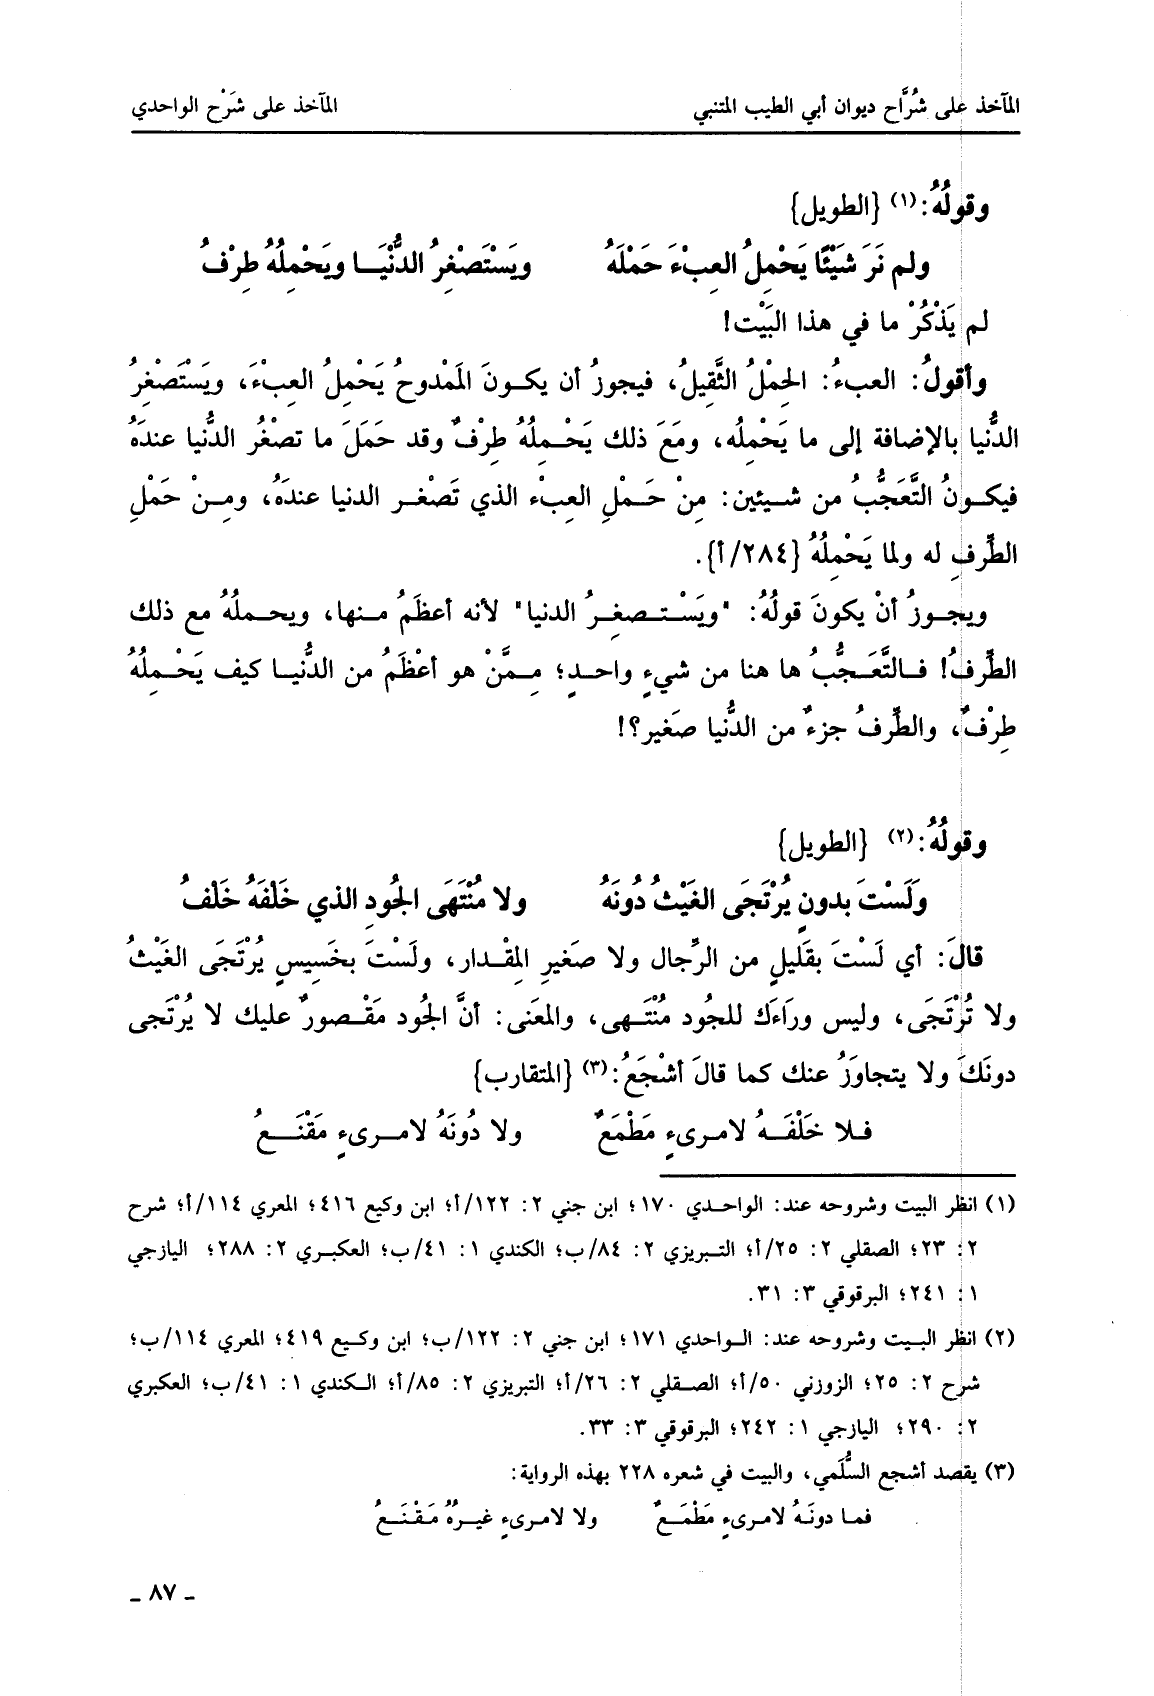 المآخذ على شُرَّاح ديوان أبي الطيب المتنبي المآخذ على شَرْح الواحدي
وقولُهُ:(١) {الطويل}
ولم نَرَ شَيْئًا يَحْمِلُ العِبْءَ حَمْلَهُ ويَسْتَصْغِرُ الدُّنْيَا ويَحْمِلُهُ طِرْفُ
لم يَذْكُرْ ما في هذا البَيْت!
وأقولُ: العبءُ: الحِمْلُ الثَّقِيلُ، فيجوزُ أن يكونَ المَمْدوحُ يَحْمِلُ العِبْءَ، ويَسْتَصْغِرُ
الدُّنيا بالإضافة إلى ما يَحْمِلُه، ومَعَ ذلك يَحْمِلُهُ طِرْفٌ وقد حَمَلَ ما تصْغُر الدنيا عندَهُ
فيكونُ التَّعَجُّبُ من شيئين: مِنْ حَمْلِ العِبْء الذي تَصْغر الدنيا عندَهُ، ومِنْ حَمْلِ
الطِّرفِ له ولما يَحْمِلُهُ {٢٨٤/أ}.
ويجوزُ أنْ يكونَ قولُهُ: "ويَسْتصغرُ الدنيا" لأنه أعظَمُ منها، ويحملُهُ مع ذلك
الطِّرفُ! فالتَّعَجُّبُ ها هنا من شيءٍ واحدٍ؛ مِمَّنْ هو أعْظَمُ من الدُّنيا كيف يَحْمِلُهُ
طِرْفٌ، والطِّرفُ جزءٌ من الدُّنيا صَغير؟!
وقولُهُ:(٢) {الطويل}
وَلَسْتَ بدونٍ يُرْتَجَى الغَيْثُ دُونَهُ ولا مُنْتَهَى الجُودِ الذي خَلْفَهُ خَلْفُ
قالَ: أي لَسْتَ بقَليلٍ من الرِّجال ولا صَغيرِ المِقْدار، ولَسْتَ بخَسِيسٍ يُرْتَجَى الغَيْثُ
ولا تُرْتَجَى، وليس ورَاءَك للجُود مُنْتَهى، والمعَنى: أنَّ الجُود مَقْصورٌ عليك لا يُرْتَجى
دونَكَ ولا يتجاوَزُ عنك كما قالَ أشْجَعُ:(٣) {المتقارب}
فلا خَلْفَهُ لامرىءٍ مَطْمَعٌ ولا دُونَهُ لامرىءٍ مَقْنَعُ
(١) انظر البيت وشروحه عند: الواحدي ١٧٠؛ ابن جني ٢: ١٢٢/أ؛ ابن وكيع ٤١٦؛ المعري ١١٤/أ؛ شرح
٢: ٢٣؛ الصقلي ٢: ٢٥/أ؛ التبريزي ٢: ٨٤/ب؛ الكندي ١: ٤١/ب؛ العكبري ٢: ٢٨٨؛ اليازجي
١: ٢٤١؛ البرقوقي ٣: ٣١.
(٢) انظر البيت وشروحه عند: الواحدي ١٧١؛ ابن جني ٢: ١٢٢/ب؛ ابن وكيع ٤١٩؛ المعري ١١٤/ب؛
شرح ٢: ٢٥؛ الزوزني ٥٠/أ؛ الصقلي ٢: ٢٦/أ؛ التبريزي ٢: ٨٥/أ؛ الكندي ١: ٤١/ب؛ العكبري
٢: ٢٩٠؛ اليازجي ١: ٢٤٢؛ البرقوقي ٣: ٣٣.
(٣) يقصد أشجع السُّلَمي، والبيت في شعره ٢٢٨ بهذه الرواية:
فما دونَهُ لامرىءٍ مَطْمَعٌ ولا لامرىءٍ غيرُهُ مَقْنَعُ
ـ ٨٧ ـ